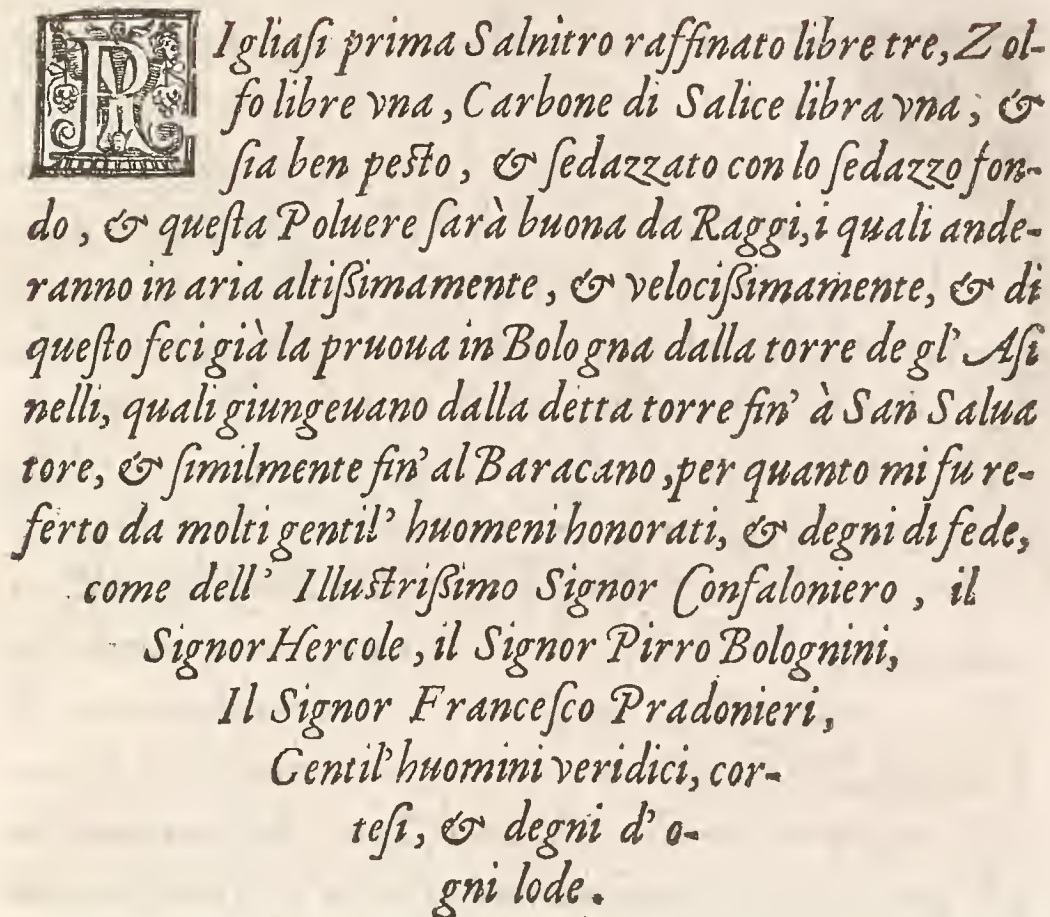 RIgliaſi prima Salnitro raffinato libre tre, Zol-
fo libre vna, Carbone di Salice libra vna; &
ſia ben peſto, & ſedazzato con lo ſedazzo fon-
do, & queſta Poluere ſarà buona da Raggi, i quali ande-
ranno in aria altiſſimamente, & velociſſimamente, & di
queſto feci già la pruoua in Bologna dalla torre de gl' Aſi
nelli, quali giungeuano dalla detta torre fin' à San Salua
tore, & ſimilmente fin' al Baracano, per quanto mi fu re-
ferto da molti gentil' huomeni honorati, & degni di fede,
come dell' Illuſtriſſimo Signor Confaloniero, il
Signor Hercole, il Signor Pirro Bolognini,
Il Signor Franceſco Pradonieri,
Gentil' huomini veridici, cor-
teſi, & degni d' o-
gni lode.